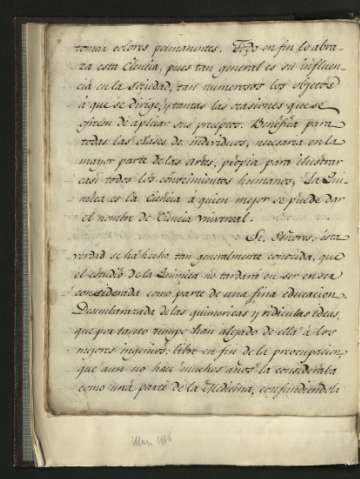 tomar colores permanentes. Todo en fin lo abra-
za esta Ciencia, pues tan general es su influen-
cia en la Sociedad, tan numerosos los objetos
á que se dirige, y tantas las ocasiones que se
ofrecen de aplicar sus preceptos. Benéfica para
todas las clases de individuos, necesaria en la
mayor parte de las artes, propia para ilustrar
casi todos los conocimientos humanos, la Quí-
mica es la Ciencia á quien mejor se puede dar
el nombre de Ciencia universal.
Si, Señores, esta
verdad se ha hecho tan generalmente conocida, que
el estudio de la Química no tardará en ser en sea
considerada como parte de una fina educacion.
Desenlazada de las quimericas y ridiculas ideas,
que por tanto tiempo han alejado de ella á los
mejores ingenios: libre en fin de la preocupacion
que aun no hace muchos años la consideraba
como una parte de la Medicina, confundiendola